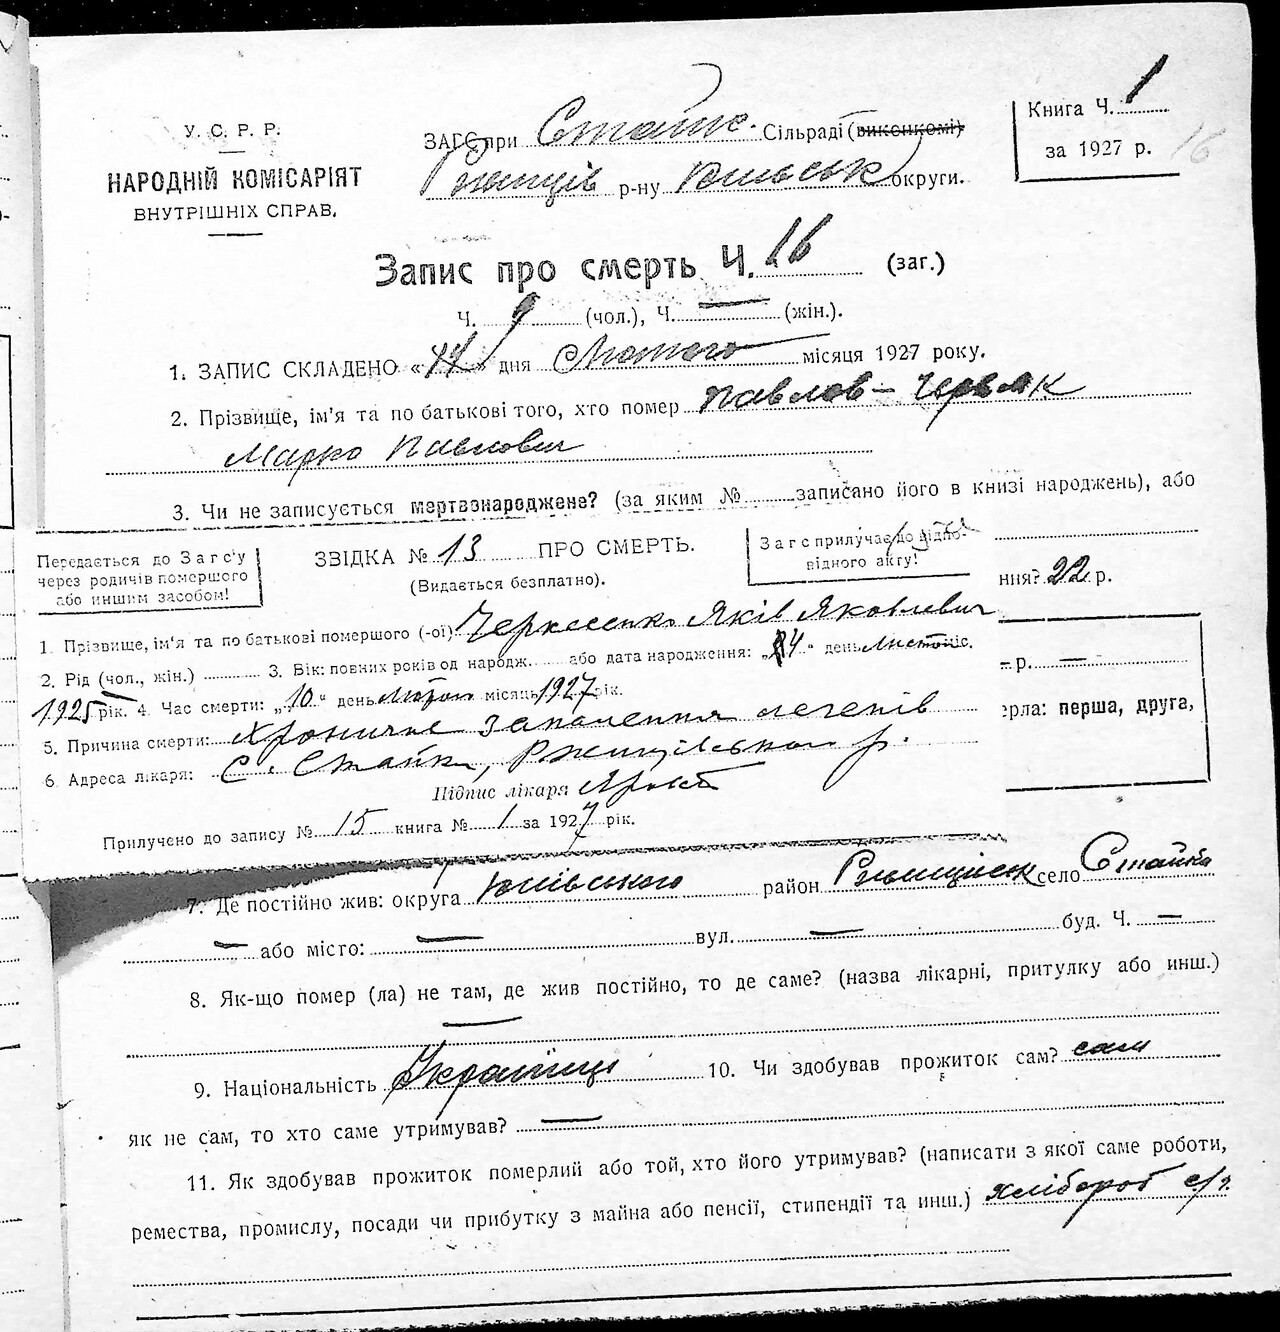 У. С. Р. Р.
НАРОДНІЙ КОМІСАРІЯТ
ВНУТРІШНІХ СПРАВ.
ЗАГС при Стайк. Сільраді (виконкомі)
р-ну округи.
Книга Ч. 1
за 1927 р. 16
Запис про смерть Ч. 16 (заг.)
Ч. 9 (чол.), Ч. — (жін.).
1. ЗАПИС СКЛАДЕНО «14» дня Лютого місяця 1927 року.
2. Прізвище, ім'я та по батькові того, хто помер Павлов – Червяк
Марко Павлович
3. Чи не записується мертвонароджене? (за яким № записано його в книзі народжень), або
Передається до Загс'у
через родичів помершого
або иншим засобом!
ЗВІДКА № 13 ПРО СМЕРТЬ.
(Видається безплатно).
Загс прилучає до відпо-
відного акту!
ння? 22 р.
1. Прізвище, ім'я та по батькові помершого (-ої) Черкасенко Яків Яковлевич
2. Рід (чол., жін.) 3. Вік: повних років од народж. або дата народження: „14“ день міс.
1925 рік. 4. Час смерти: „10“ день місяць 1927 рік.
– р. —
5. Причина смерти: Хроничне запалення легенів
ерла: перша, друга,
6. Адреса лікаря: С. Стайки, Ржищівського р.
Підпис лікаря
Прилучено до запису № 15 книга № 1 за 1927 рік.
7. Де постійно жив: округа Київського район село Стайки
— або місто: — вул. — буд. Ч. —
8. Як-що помер (ла) не там, де жив постійно, то де саме? (назва лікарні, притулку або инш.)
—
9. Національність Українці 10. Чи здобував прожиток сам? сам
як не сам, то хто саме утримував? —
11. Як здобував прожиток померлий або той, хто його утримував? (написати з якої саме роботи,
ремества, промислу, посади чи прибутку з майна або пенсії, стипендії та инш.) хлібороб с/г.